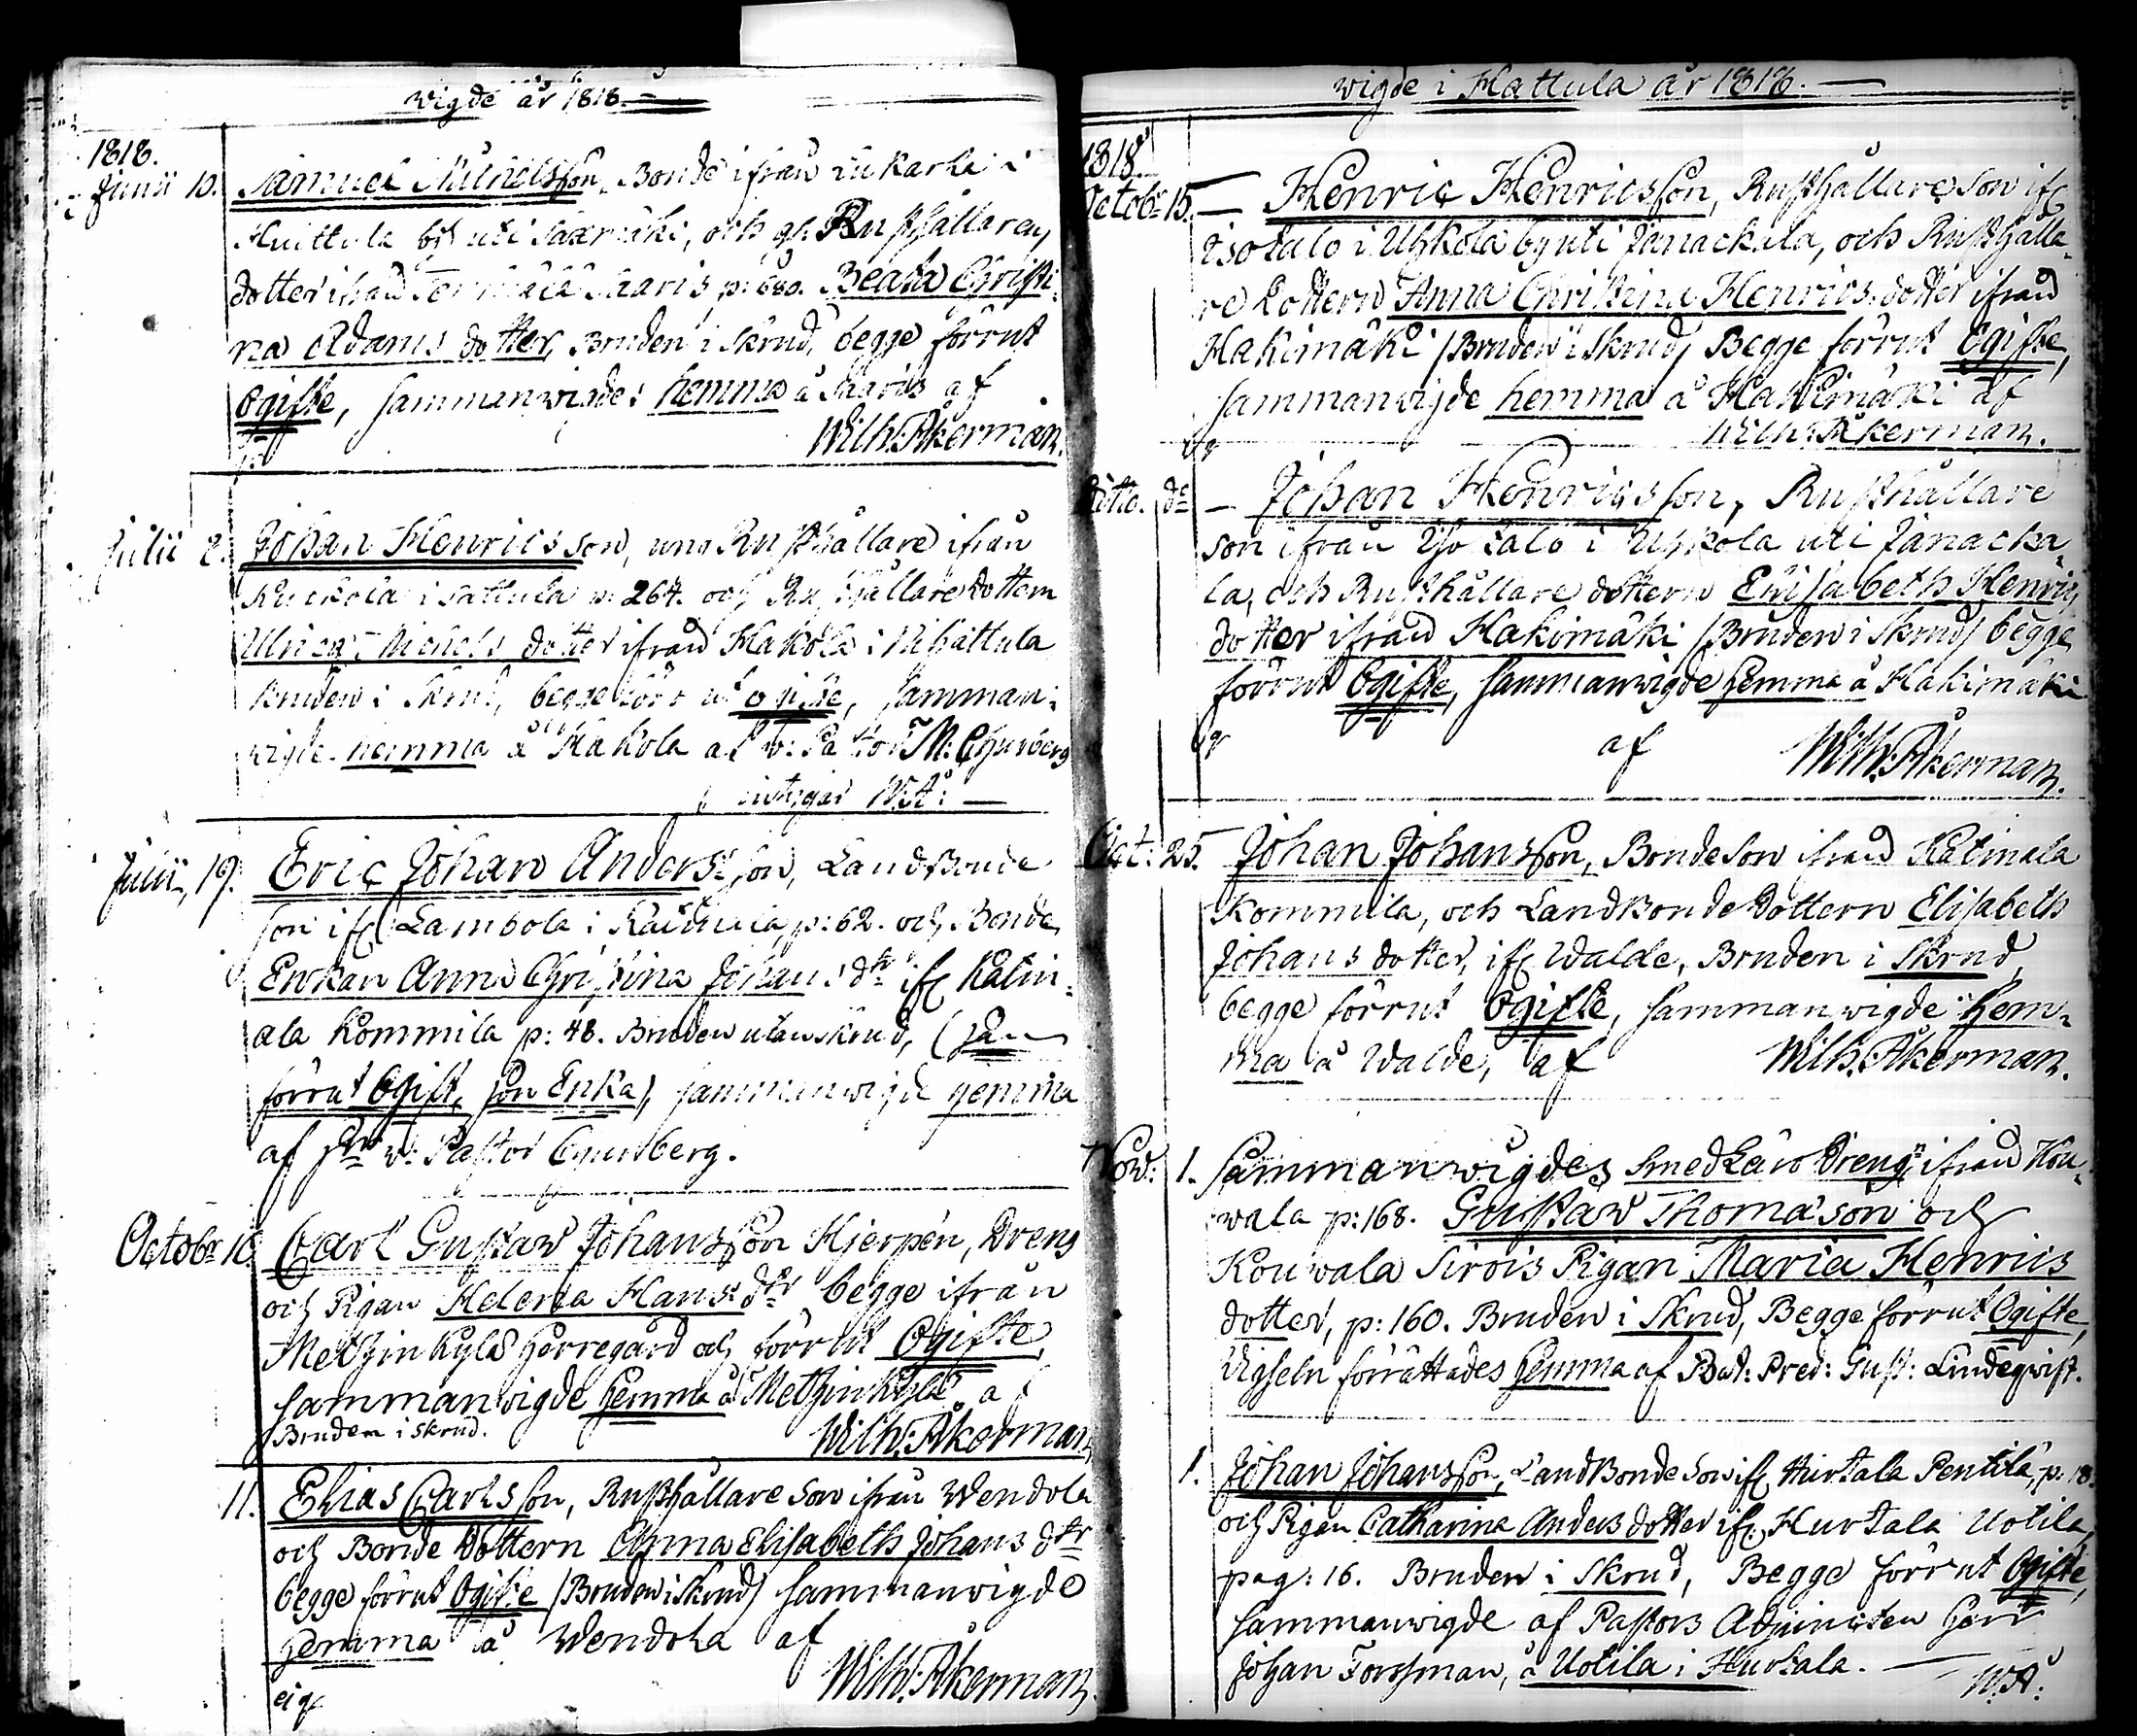 wigde år 1818.
1818.
Junii 10. Samuel Michelsson, Bonde ifrån
Huittula by uti Sääxmäki, och gl. Rusthållaren
dotter ifrån Saaris, p: 680. Beata Christi-
na Adams dotter, Bruden i Skrud, begge förrut
Ogifte, sammanwigde hemma å Saaris af
Wilh: Åkerman.
Julii 2. Johan Henricsson, unn Rusthållare ifrån
i Sattula p: 264. och Rusthållare dottern
Ulrica Michels dotter ifrån Hakola i Nihattula
Bruden i Skrud, begge förrut ogifte, samman-
wigde hemma å Hakola af v: Pastor M: Churberg
intygar W:Å:
Julii, 19. Eric Johan Anders son, Landbonde
son ifr Lambola i p: 62. och Bonde
Enkan Anna Christina Johans dtr ifr Katin-
ala Kommila p: 48. Bruden utan skrud, (han
förrut Ogift, hon Enka), sammanwigde hemma
af Hr v: Pastor Churberg.
Octobr 10. Carl Gustaw Johansson Hjerpén, Dreng
och Pigan Helena Hans dtr begge ifrån
Metzinkylä herregård och förrut Ogifte,
sammanwigde hemma å Metzinkylä af
Bruden i Skrud. Wilh: Åkerman
11. Elias Carlsson, Rusthållare Son ifrån Wendola
och Bonde Dottern Anna Elisabeth Johans dtr
begge förrut Ogifte /Bruden i Skrud/ sammanwigde
hemma å Wendola af
Wilh: Åkerman.
wigde i Hattula år 1818.
1818
Octobr 15. Henric Henricsson, Rusthållare Son ifr
Isotalo i Uhkola by uti Janackala, och Rusthålla-
re Dottern Anna Christina Henrics dotter ifrån
Hakimäki /Bruden i Skrud/ Begge förrut Ogifte,
sammanwigde hemma å Hakimäki af
Wilh: Åkerman.
Ditto. de Johan Henricsson, Rusthållare
son ifrån Iso talo i Uhkola uti Janacka-
la, och Rusthållare dottern Elisabeth Henrics
dotter ifrån Hakimäki /Bruden i Skrud/ begge
förrut Ogifte, sammanwigde hemma å Hakimäki
af Wilh: Åkerman.
Oct: 25. Johan Johansson, Bonde Son ifrån Katinala
Kommila, och Landbonde Dottern Elisabeth
Johans dotter, ifr Walde, Bruden i Skrud,
begge förrut Ogifte, sammanwigde hem-
ma å Walde, af Wilh: Åkerman.
Now: 1. Sammanwigdes Smed Läro Dreng ifrån Kou-
wala p: 168. Gustaw Thomasson och
Kouwala Sirois Pigan Maria Henrics
dotter, p: 160. Bruden i Skrud, Begge förrut Ogifte,
Vigseln förrättades hemma af Bat: Pred: Gust: Lindeqvist.
1. Johan Johansson, Landbonde Son ifr Hurtala Pentilä, p. 18.
och Pigan Catharina Anders dotter ifr Hurtala Uotila,
pag: 16. Bruden i Skrud, Begge förrut Ogifte,
sammanwigde af Pastors Adjuncten Herr
Johan Forssman, å Uotila i Hurtala.
W:Å: